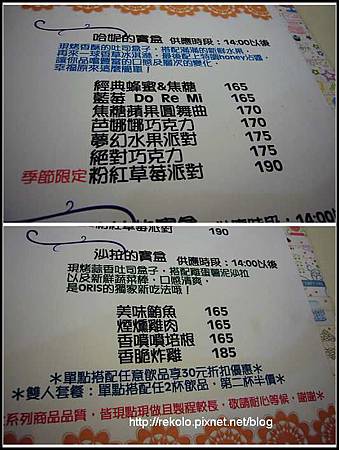 哈妮的寶盒 供應時段：14:00以後
現烤香酥的吐司盒子，搭配滿滿的新鮮水果
再來一球香草冰淇淋，最後配上特調honey沾醬
讓你品嚐豐富的口感及層次的變化，
幸福原來這麼簡單！
經典蜂蜜&焦糖 165
藍莓 Do Re Mi 165
焦糖蘋果圓舞曲 170
芭娜娜巧克力 170
夢幻水果派對 175
絕對巧克力 175
季節限定 粉紅草莓派對 190
14:00
粉紅草莓派對 190
沙拉的寶盒 供應時段：14:00以後
現烤蒜香吐司盒子，搭配雞蛋薯泥沙拉
以及新鮮蔬菜棒，口感清爽，
是ORIS的獨家新吃法哦！
美味鮪魚 165
煙燻雞肉 165
香噴噴培根 165
香脆炸雞 185
＊單點搭配任意飲品享30元折扣優惠＊
＊雙人套餐：單點搭配任2杯飲品，第二杯半價＊
系列商品品質，皆現點現做且製程較長，敬請耐心等候，謝謝＊
http://rekolo.pixnet.net/blog